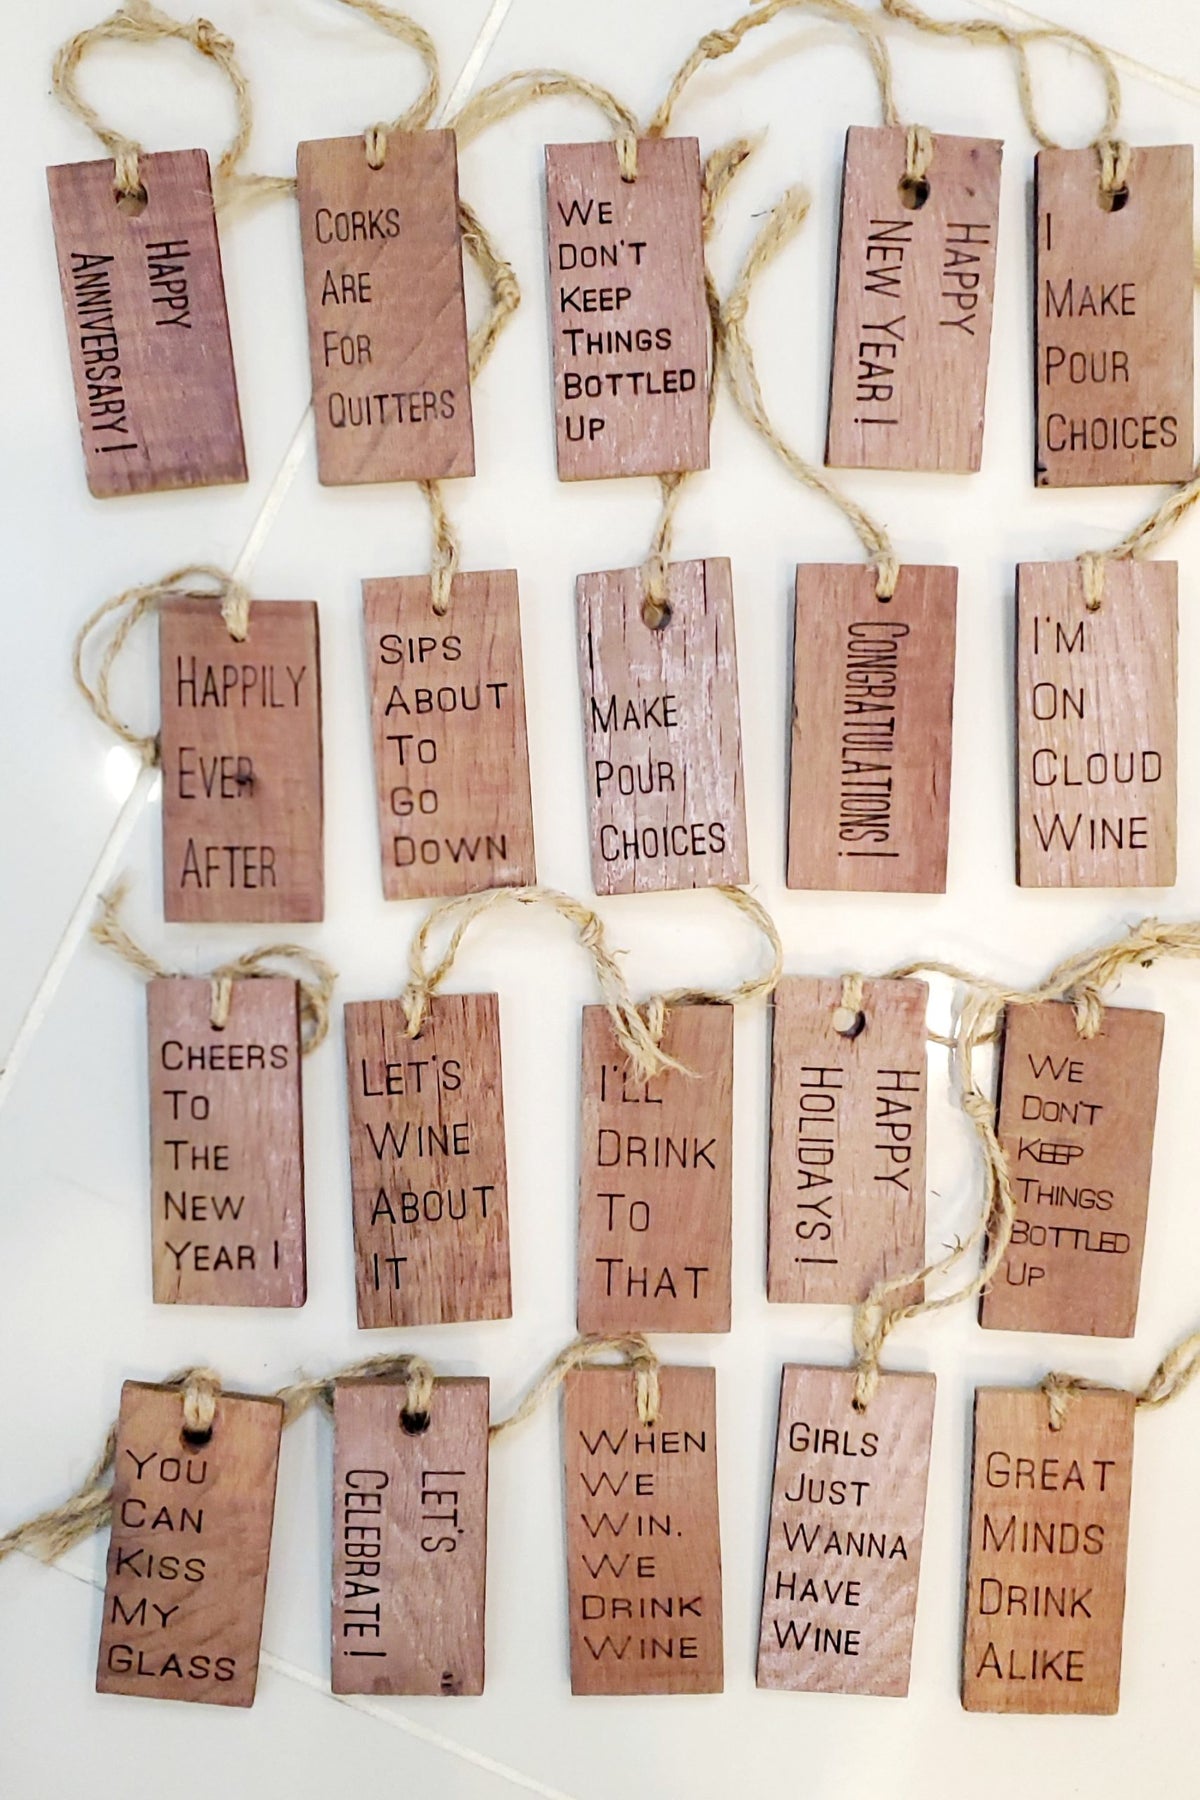 HAPPY
ANNIVERSARY!
CORKS
ARE
FOR
QUITTERS
WE
DON'T
KEEP
THINGS
BOTTLED
UP
HAPPY
NEW YEAR!
I
MAKE
POUR
CHOICES
HAPPILY
EVER
AFTER
SIPS
ABOUT
TO
GO
DOWN
MAKE
POUR
CHOICES
CONGRATULATIONS!
I'M
ON
CLOUD
WINE
CHEERS
TO
THE
NEW
YEAR!
LET'S
WINE
ABOUT
IT
I'LL
DRINK
TO
THAT
HAPPY
HOLIDAYS!
WE
DON'T
KEEP
THINGS
BOTTLED
UP
YOU
CAN
KISS
MY
GLASS
LET'S
CELEBRATE!
WHEN
WE
WIN.
WE
DRINK
WINE
GIRLS
JUST
WANNA
HAVE
WINE
GREAT
MINDS
DRINK
ALIKE